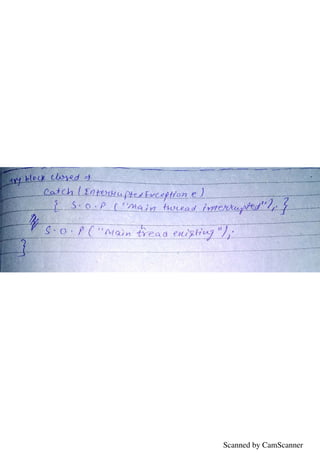 try block closed }
catch (InterruptedException e)
{ S.O.P ("Main thread interrupted"); }
S.O.P ("Main tread existing");
}
Scanned by CamScanner